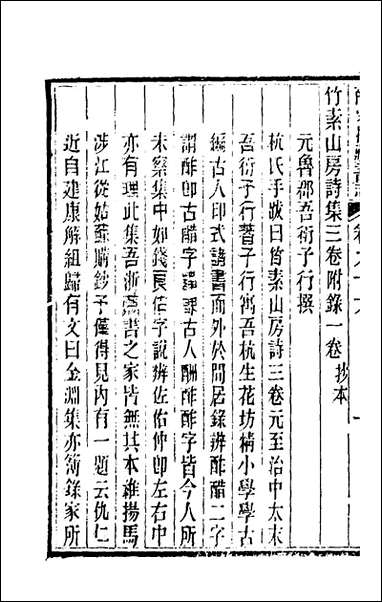 竹素山房詩集三卷附錄一卷 抄本
元魯郡吾衍子行撰
杭氏手跋曰竹素山房詩三卷元至治中太末
吾衍子行著子行寓吾杭生花坊精小學學古
編古人印式諸書而外於閒居錄辨酢醋二字
謂酢卽古醋字謬誤古人酬酢酢字皆今人所
未察集中如錢良佑字說辨佐佑仲卽左右中
亦有理此集吾浙藏書之家皆無其本維揚馬
涉江從姑蘇購鈔予僅得見內有一題云仇仁
近自建康解組歸有文曰金淵集亦簿錄家所